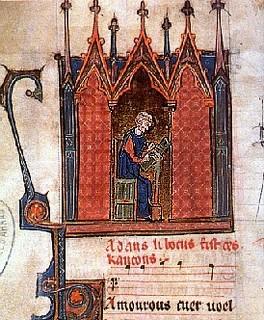 Adans li bocus fist ces
kançons
Amourous cuer voel